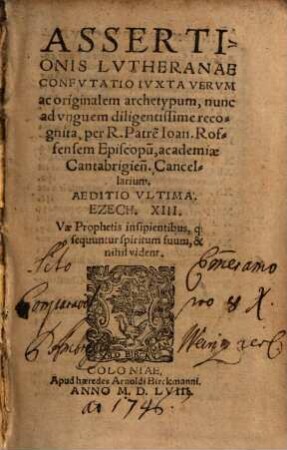 ASSERTI-
ONIS LVTHERANAE
CONFVTATIO IVXTA VERVM
ac originalem archetypum, nunc
ad vnguem diligentissime reco-
gnita, per R. Patrē Ioan. Rof-
fensem Episcopū, academiæ
Cantabrigieñ. Cancel-
larium.
AEDITIO VLTIMA.
EZECH. XIII.
Væ Prophetis insipientibus, q̃
sequuntur spiritum suum, &
nihil vident.
COLONIAE,
Apud hæredes Arnoldi Birckmanni.
ANNO M. D. LVIII.
1746.